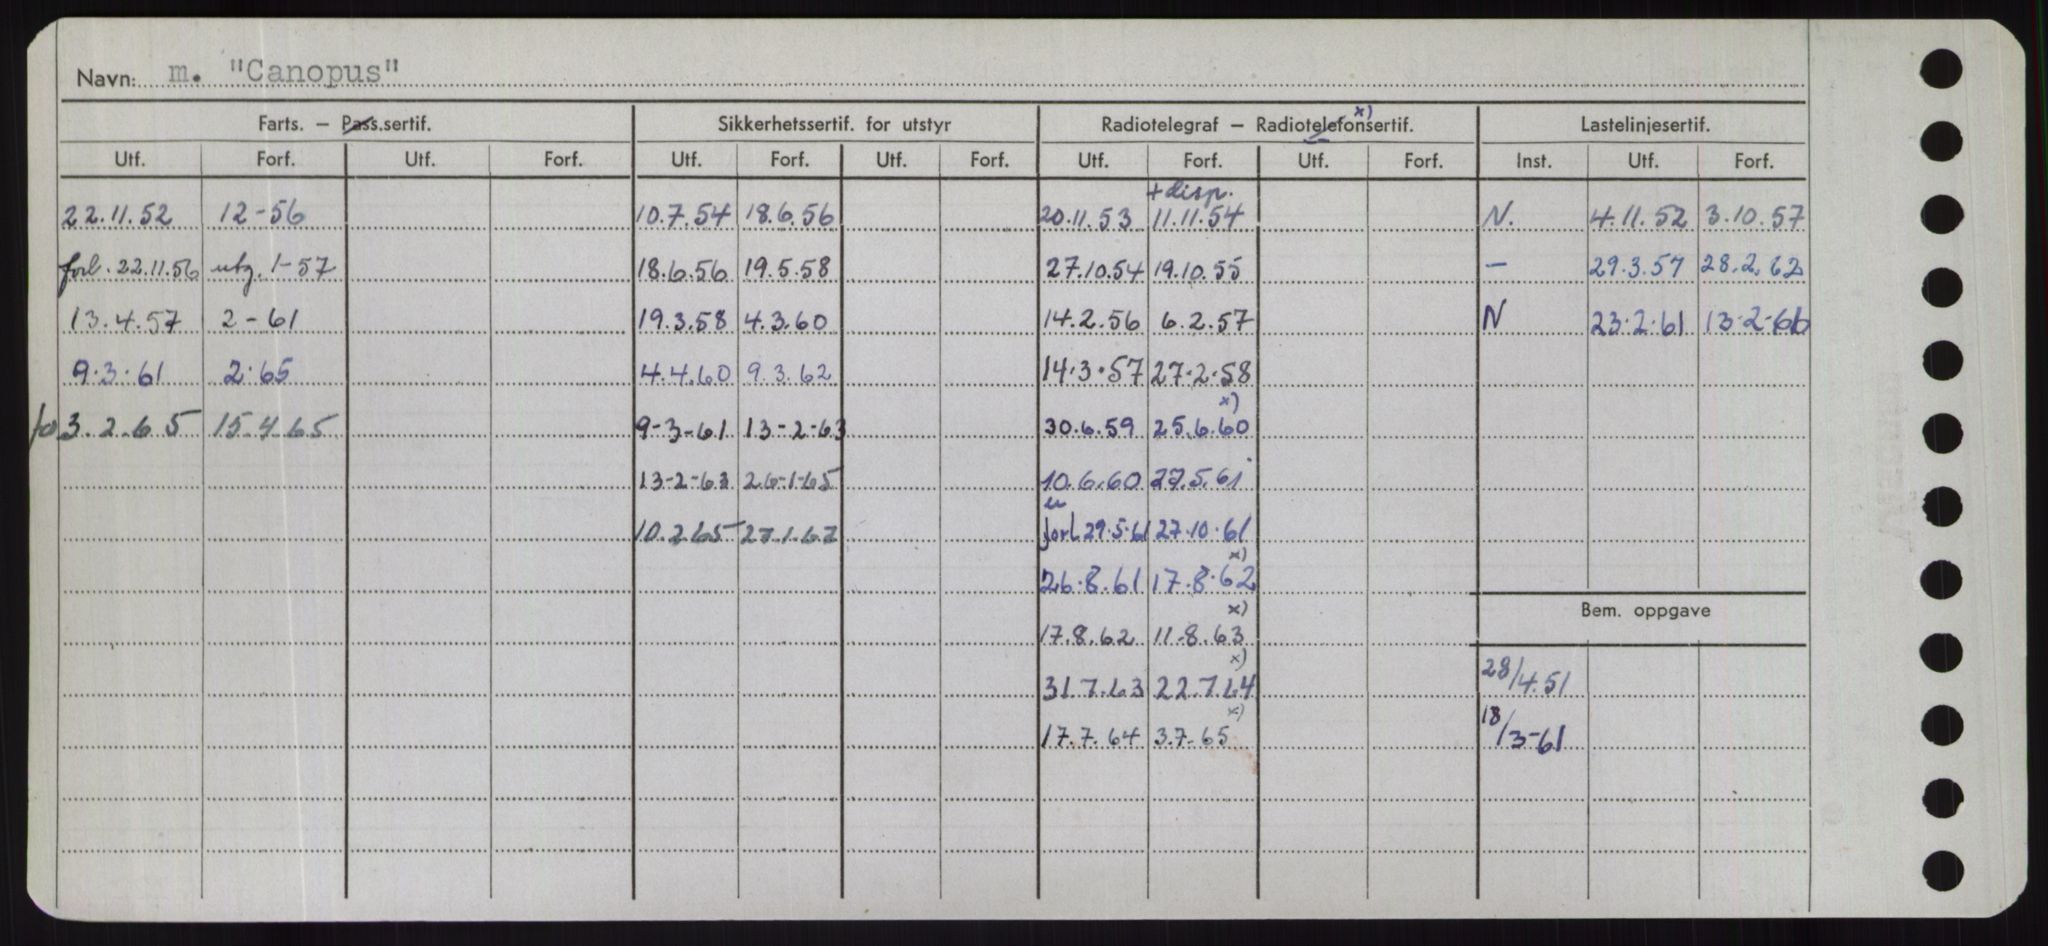 Navn: m. "Canopus"
Farts. – Pass.sertif. Sikkerhetssertif. for utstyr Radiotelegraf – Radiotelefonsertif. x) Lastelinjesertif.
Utf. Forf. Utf. Forf. Utf. Forf. Utf. Forf. Utf. Forf. Utf. Forf. Inst. Utf. Forf.
+ disp.
22.11.52 12-56 10.7.54 18.6.56 20.11.53 11.11.54 N. 4.11.52 3.10.57
forl. 22.11.56 utg. 1-57 18.6.56 19.5.58 27.10.54 19.10.55 – 29.3.57 28.2.62
13.4.57 2-61 19.3.58 4.3.60 14.2.56 6.2.57 N 23.2.61 13.2-66
9.3.61 2.65 4.4.60 9.3.62 14.3.57 27.2.58
x)
3.2.65 15.4.65 9-3-61 13-2-63 30.6.59 25.6.60
13-2-63 26-1-65 10.6.60 27.5.61
10.2.65 27.1.67 forl 29.5.61 27.10.61
x)
26.8.61 17.8.62
Bem. oppgave
x)
17.8.62 11.8.63
x)
31.7.63 22.7.64 28/4.51
x)
17.7.64 3.7.65 18/3-61